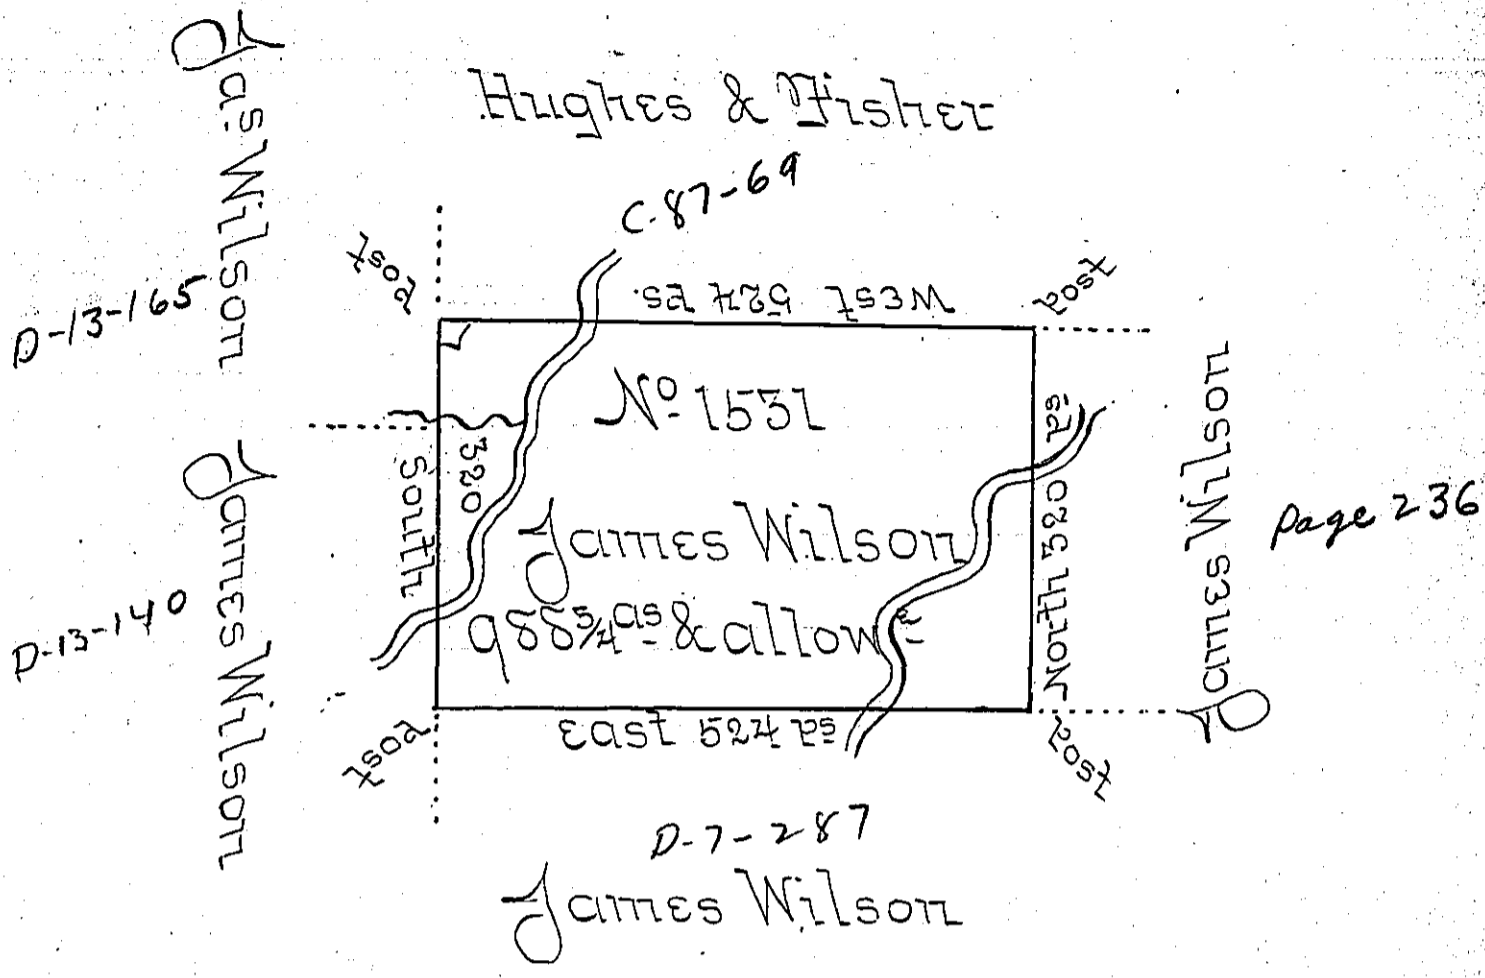 Hughes & Fisher
C-87-69
Jas. Wilson
D-13-165
Post
West 524 Ps.
Post
No 1531
James Wilson
988 3/4 as & allowce
South
320
North 320 Ps
James Wilson
Page 236
James Wilson
D-13-140
Post
East 524 Ps
Post
D-7-287
James Wilson